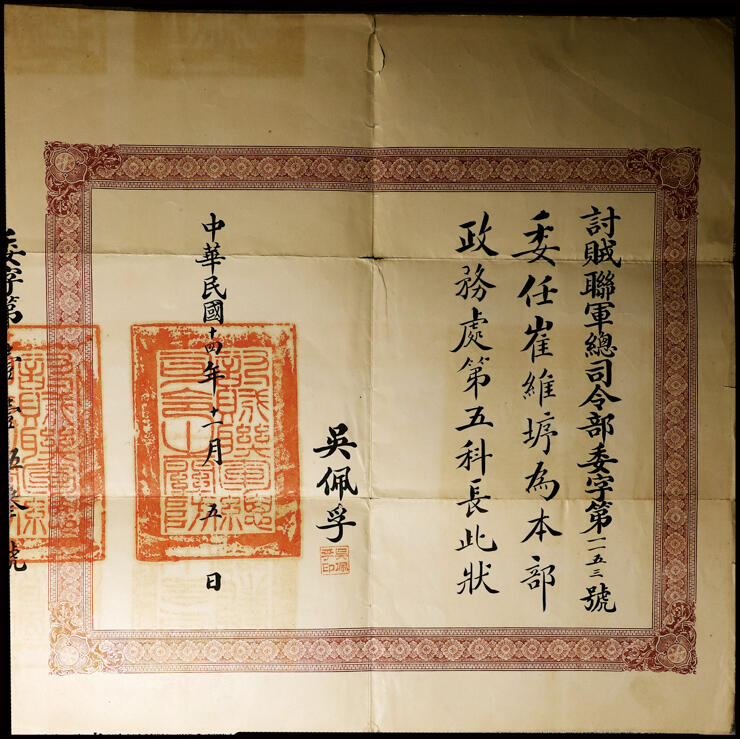 討賊聯軍總司令部委字第一一五三號
委任崔維垿為本部
政務處第五科長此狀
吳佩孚
吳佩孚印
中華民國十四年十一月五日
討賊聯軍總
司令之關防
委字第
號